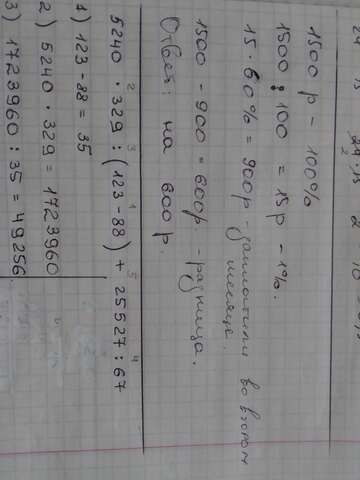 1500 р – 100%
1500 : 100 = 15 р – 1%.
15 · 60% = 900 р – заплатили во втором
месяце.
1500 – 900 = 600 р – разница.
Ответ: на 600 р.
5240 · 329 : (123 – 88) + 25527 : 67
1) 123 – 88 = 35
2) 5240 · 329 = 1723960
3) 1723960 : 35 = 49256